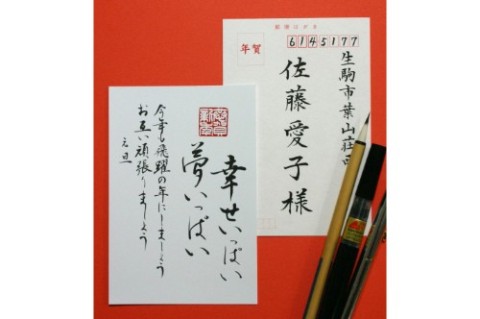 郵便はがき
年賀
6145177
生駒市葉山荘
佐藤愛子様
幸せいっぱい
夢いっぱい
今年も飛躍の年にしましょう
お互い頑張りましょう
元旦